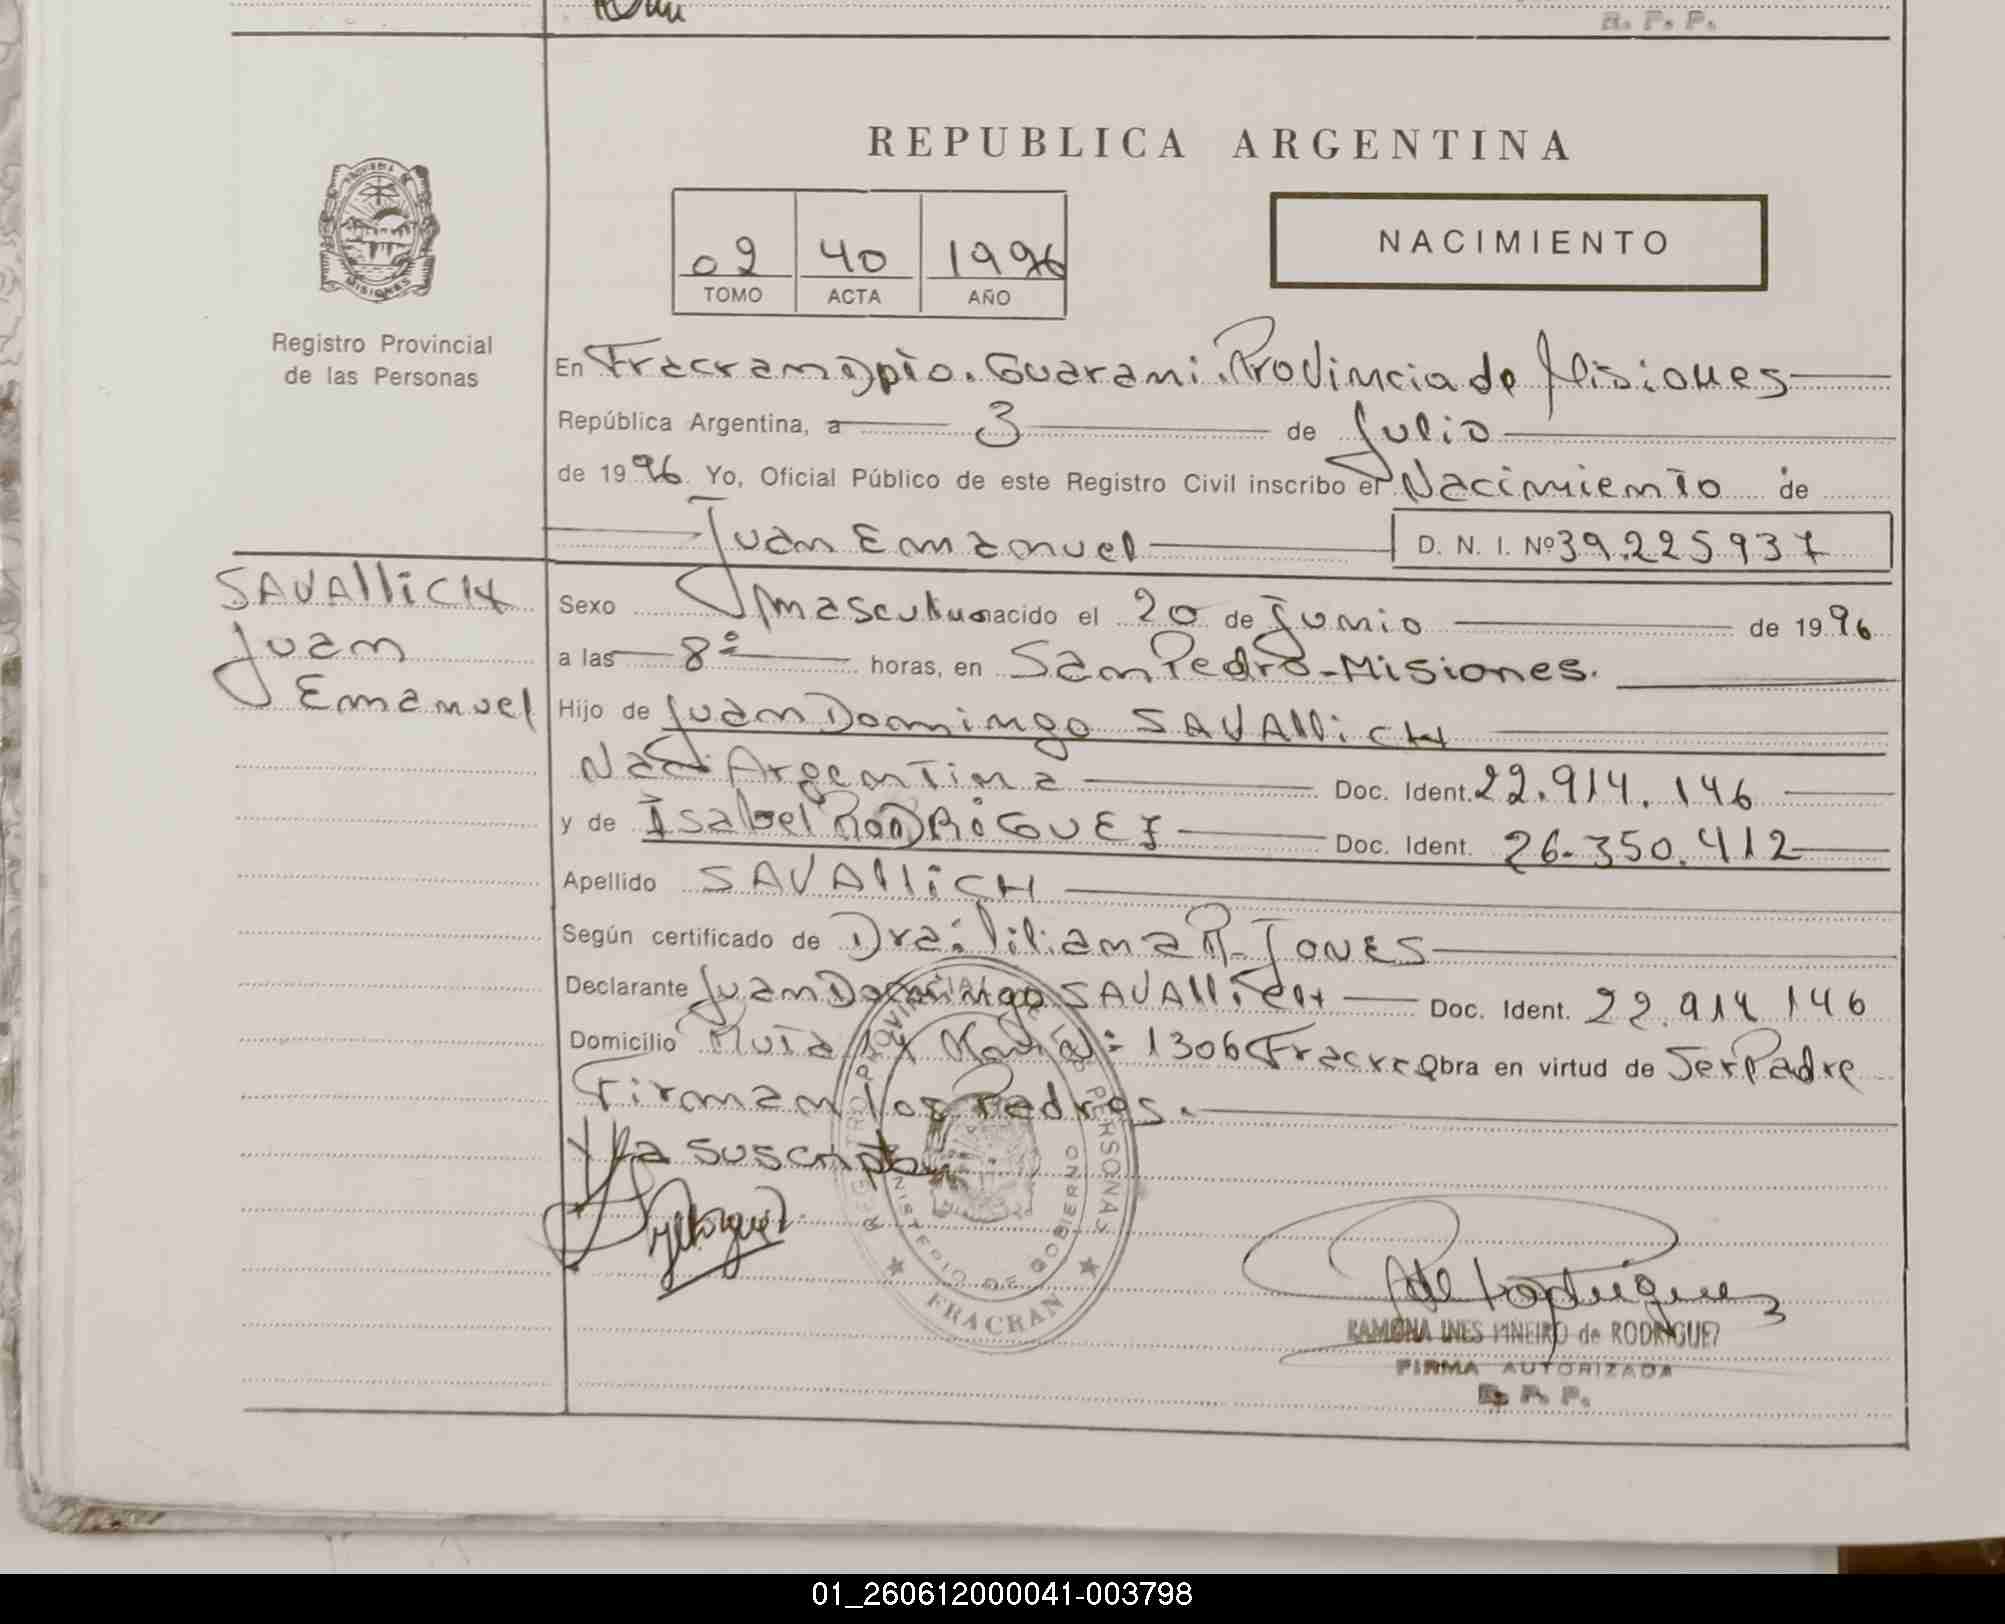 R. P. P.
REPUBLICA ARGENTINA
PROVINCIA DE
MISIONES
Registro Provincial
de las Personas
02 40 1996
TOMO ACTA AÑO
NACIMIENTO
En Fracran Dpto. Guarani. Provincia de Misiones
República Argentina, a 3 de Julio
de 1996 Yo, Oficial Público de este Registro Civil inscribo el Nacimiento de
Juan Emanuel D. N. I. Nº 39.225.937
SAVALLiCH
Juan
Emanuel
Sexo Masculino nacido el 20 de Junio de 1996
a las 8º horas, en San Pedro-Misiones.
Hijo de Juan Domingo SAVALLiCH
Nac. Argentina Doc. Ident. 22.914.146
y de Isabel RODRiGUEZ Doc. Ident. 26.350.412
Apellido SAVALLiCH
Según certificado de Dra: Liliana R. JONES
Declarante Juan Domingo SAVALLiCH Doc. Ident. 22.914 146
Domicilio Ruta 14 1306 Fracran Obra en virtud de Ser Padre
Firman los Padres.
y la suscripta
REGISTRO PROVINCIAL DE LAS PERSONAS
MINISTERIO DE GOBIERNO
FRACRAN
RAMONA INES PIÑEIRO de RODRIGUEZ
FIRMA AUTORIZADA
R. P. P.
01_260612000041-003798